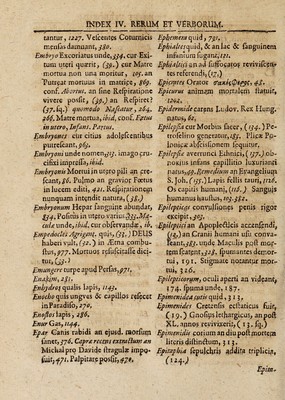 INDEX IV. RERUM ET VERBORUM.
tantur, 1227. Vescentes Coturnicis
mensas damnant, 580.
Embryo Excoriatus unde, 534. cur Exi-
tum uteri querit, (39.) cur Matre
mortua non una moritur, 105. an
Putreat mortuus in matrice, 869.
conf. Abortus, an sine Respiratione
vivere possit, (39.) an Respiret?
(37. sq.) quomodo Nascatur, 264.
266. Matre mortua, ibid. conf. Fœtus
in utero, Infans. Partus.
Embryones cur citius adolescentibus
putrescant, 863.
Embryoni unde nomen, 313. imago cru-
cifixi impressa, ibid.
Embryonis Mortui in utero pili an cre-
scant, 86. Pulmo an gravior Fœtus
in lucem editi, 421. Respirationem
nunquam intendit natura, (38.)
Embryonum Hepar sanguine abundat,
534. Positus in utero varius, 313. Ma-
culæ unde, ibid. cur observandæ, ib.
Empedoclis Agrigent. quis, (51.) DEUS
haberi vult, (52.) in Ætna combu-
stus, 977. Mortuos resuscitasse dici-
tur, (53.)
Emungere turpe apud Persas, 971.
Enakim, 251.
Enhydros qualis lapis, 1143.
Enocho quis ungues & capillos resecet
in Paradiso, 270.
Enostos lapis, 286.
Enur Gas, 1144.
Epar Canis rabidi an ejusd. morsum
sanet, 376. Capræ recens extinctum an
Michal pro Davide stragulæ impo-
suit, 471. Palpitare possit, 470.
Ephemerum quid, 731.
Ephialtes quid, & an lac & sanguinem
infantium sugat, 121.
Ephialtis an ad suffocatos reviviscen-
tes referendi, (17.)
Epicenes Orator
Epicurus animam mortalem statuit,
1202.
Epidermide carens Ludov. Rex Hung.
natus, 61.
Epilepsia cur Morbus sacer, (114.) Pe-
troselino generatur, 185. Plicæ Polo-
nicæ abscissionem sequitur.
Epilepsiæ averrunci Ethnicis, (17.) Jo-
viniis infans capillitio luxurianti
natus, 49. Remedium an Evangelium
S. Joh. (117.) Lapis fellis tauri, 1126.
Os capitis humani, (115.) Sanguis
humanus haustus, 103. 382.
Epilepticas convulsiones penis rigor
excipit, 303.
Epileptici an Apoplectiis accensendi,
(14.) an Cranii humani usu conva-
lescant, 383. unde Maculis post mor-
tem scateant, 328. spumantes demor-
tui, 191. Stigmate notantur mor-
tui, 326.
Epilepticorum, oculi aperti an videant,
174. spuma unde, 187.
Epimenidea cutis quid, 313.
Epimenides Cretensis ecstaticus fuit,
(19.) Gnosius lethargicus, an post
XL. annos revixerit, (13. sq.)
Epimenidis corium an diu post mortem
literis distinctum, 313.
Epitaphia sepulchris addita triplicia,
(124.)
Epim-